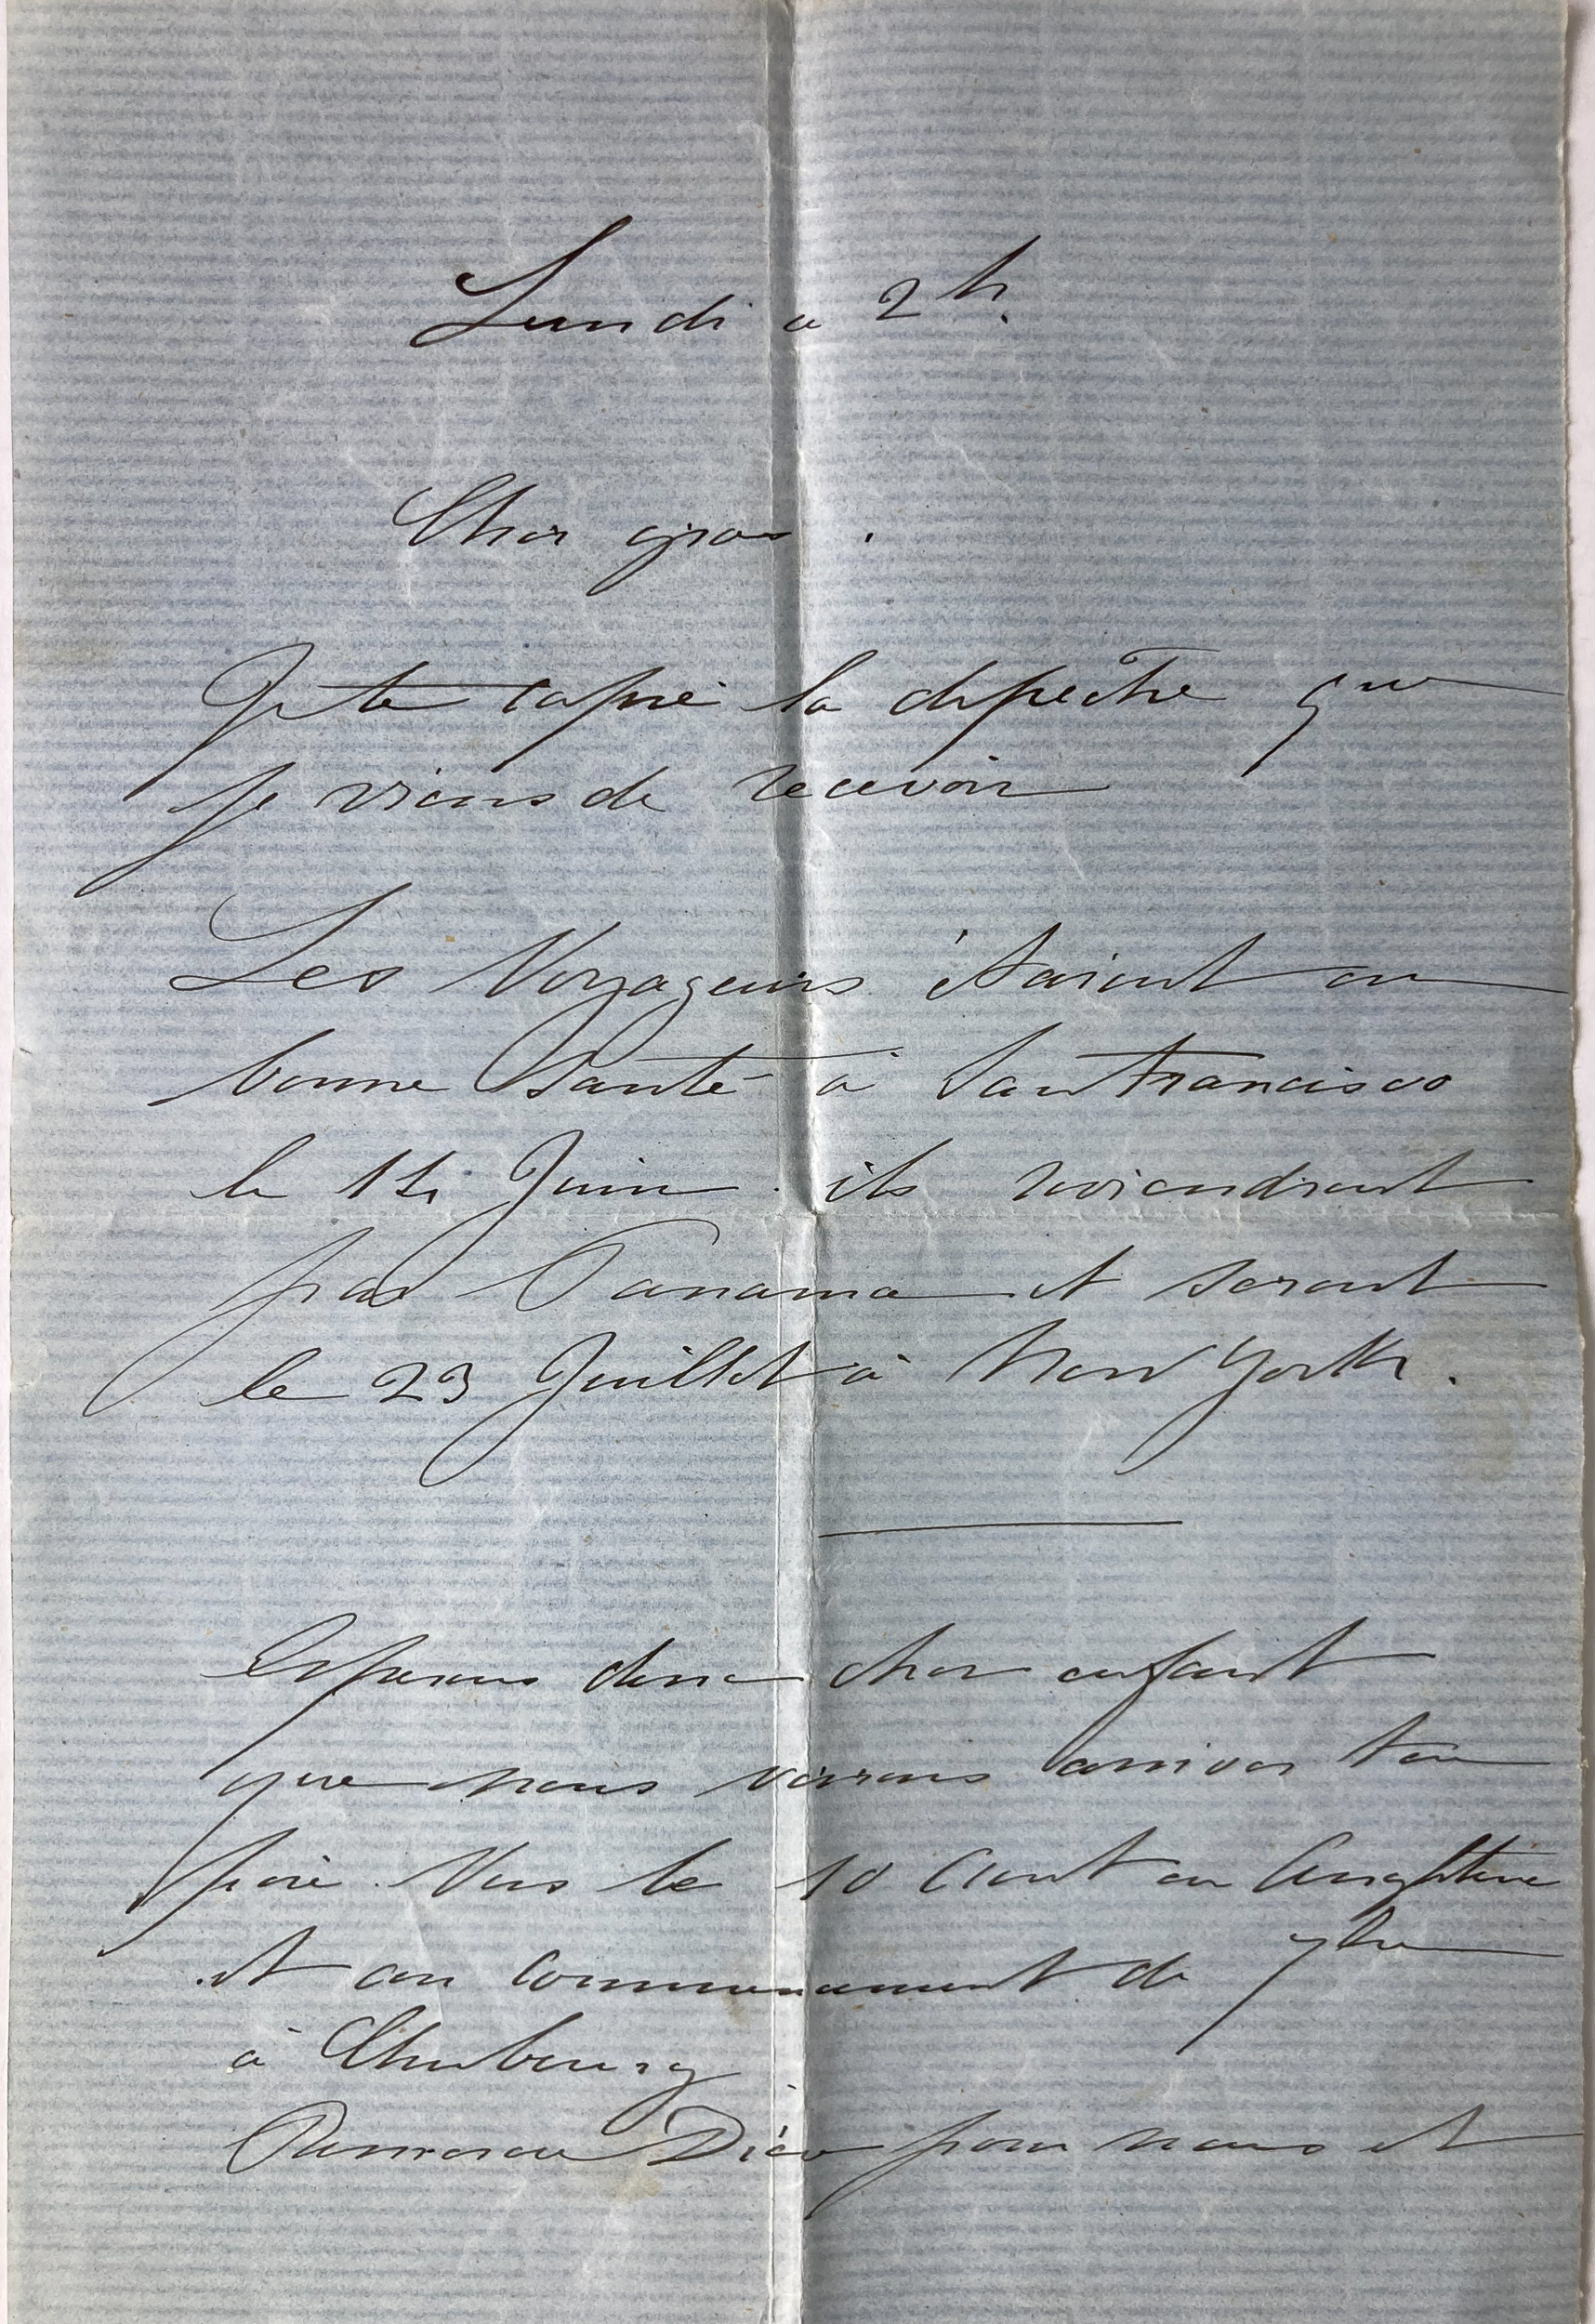 Lundi a 2h.
Cher gros.
Je te copie la depêche que
je viens de recevoir
Les Voyageurs étaient en
bonne Santé à San Francisco
le 14 Juin. ils reviendront
par Panama et seront
le 23 Juillet à New York.
Esperons donc cher enfant
que nous verrons arriver ton
père Vers le 10 Aout en Angleterre
et au commencement de 7bre
à Cherbourg
Remercie Dieu pour nous et